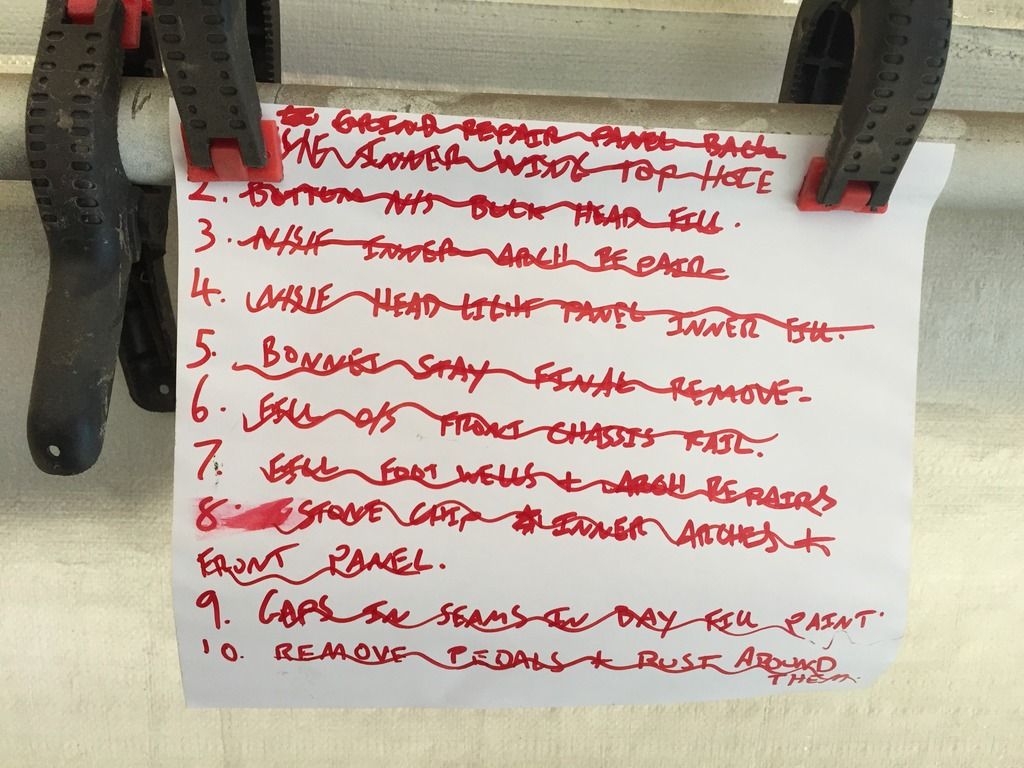 GRIND REPAIR PANEL BACK
INNER WING TOP HOLE
2. BOTTOM N/S BULK HEAD FILL.
3. N/S/F INNER ARCH REPAIR
4. N/S/F HEAD LIGHT PANEL INNER FILL.
5. BONNET STAY FINAL REMOVE.
6. FILL O/S FRONT CHASSIS RAIL.
7. FILL FOOT WELLS + ARCH REPAIRS
8. STONE CHIP INNER ARCHES +
FRONT PANEL.
9. GAPS IN SEAMS IN BAY FILL PAINT.
10. REMOVE PEDALS + RUST AROUND
THEM.